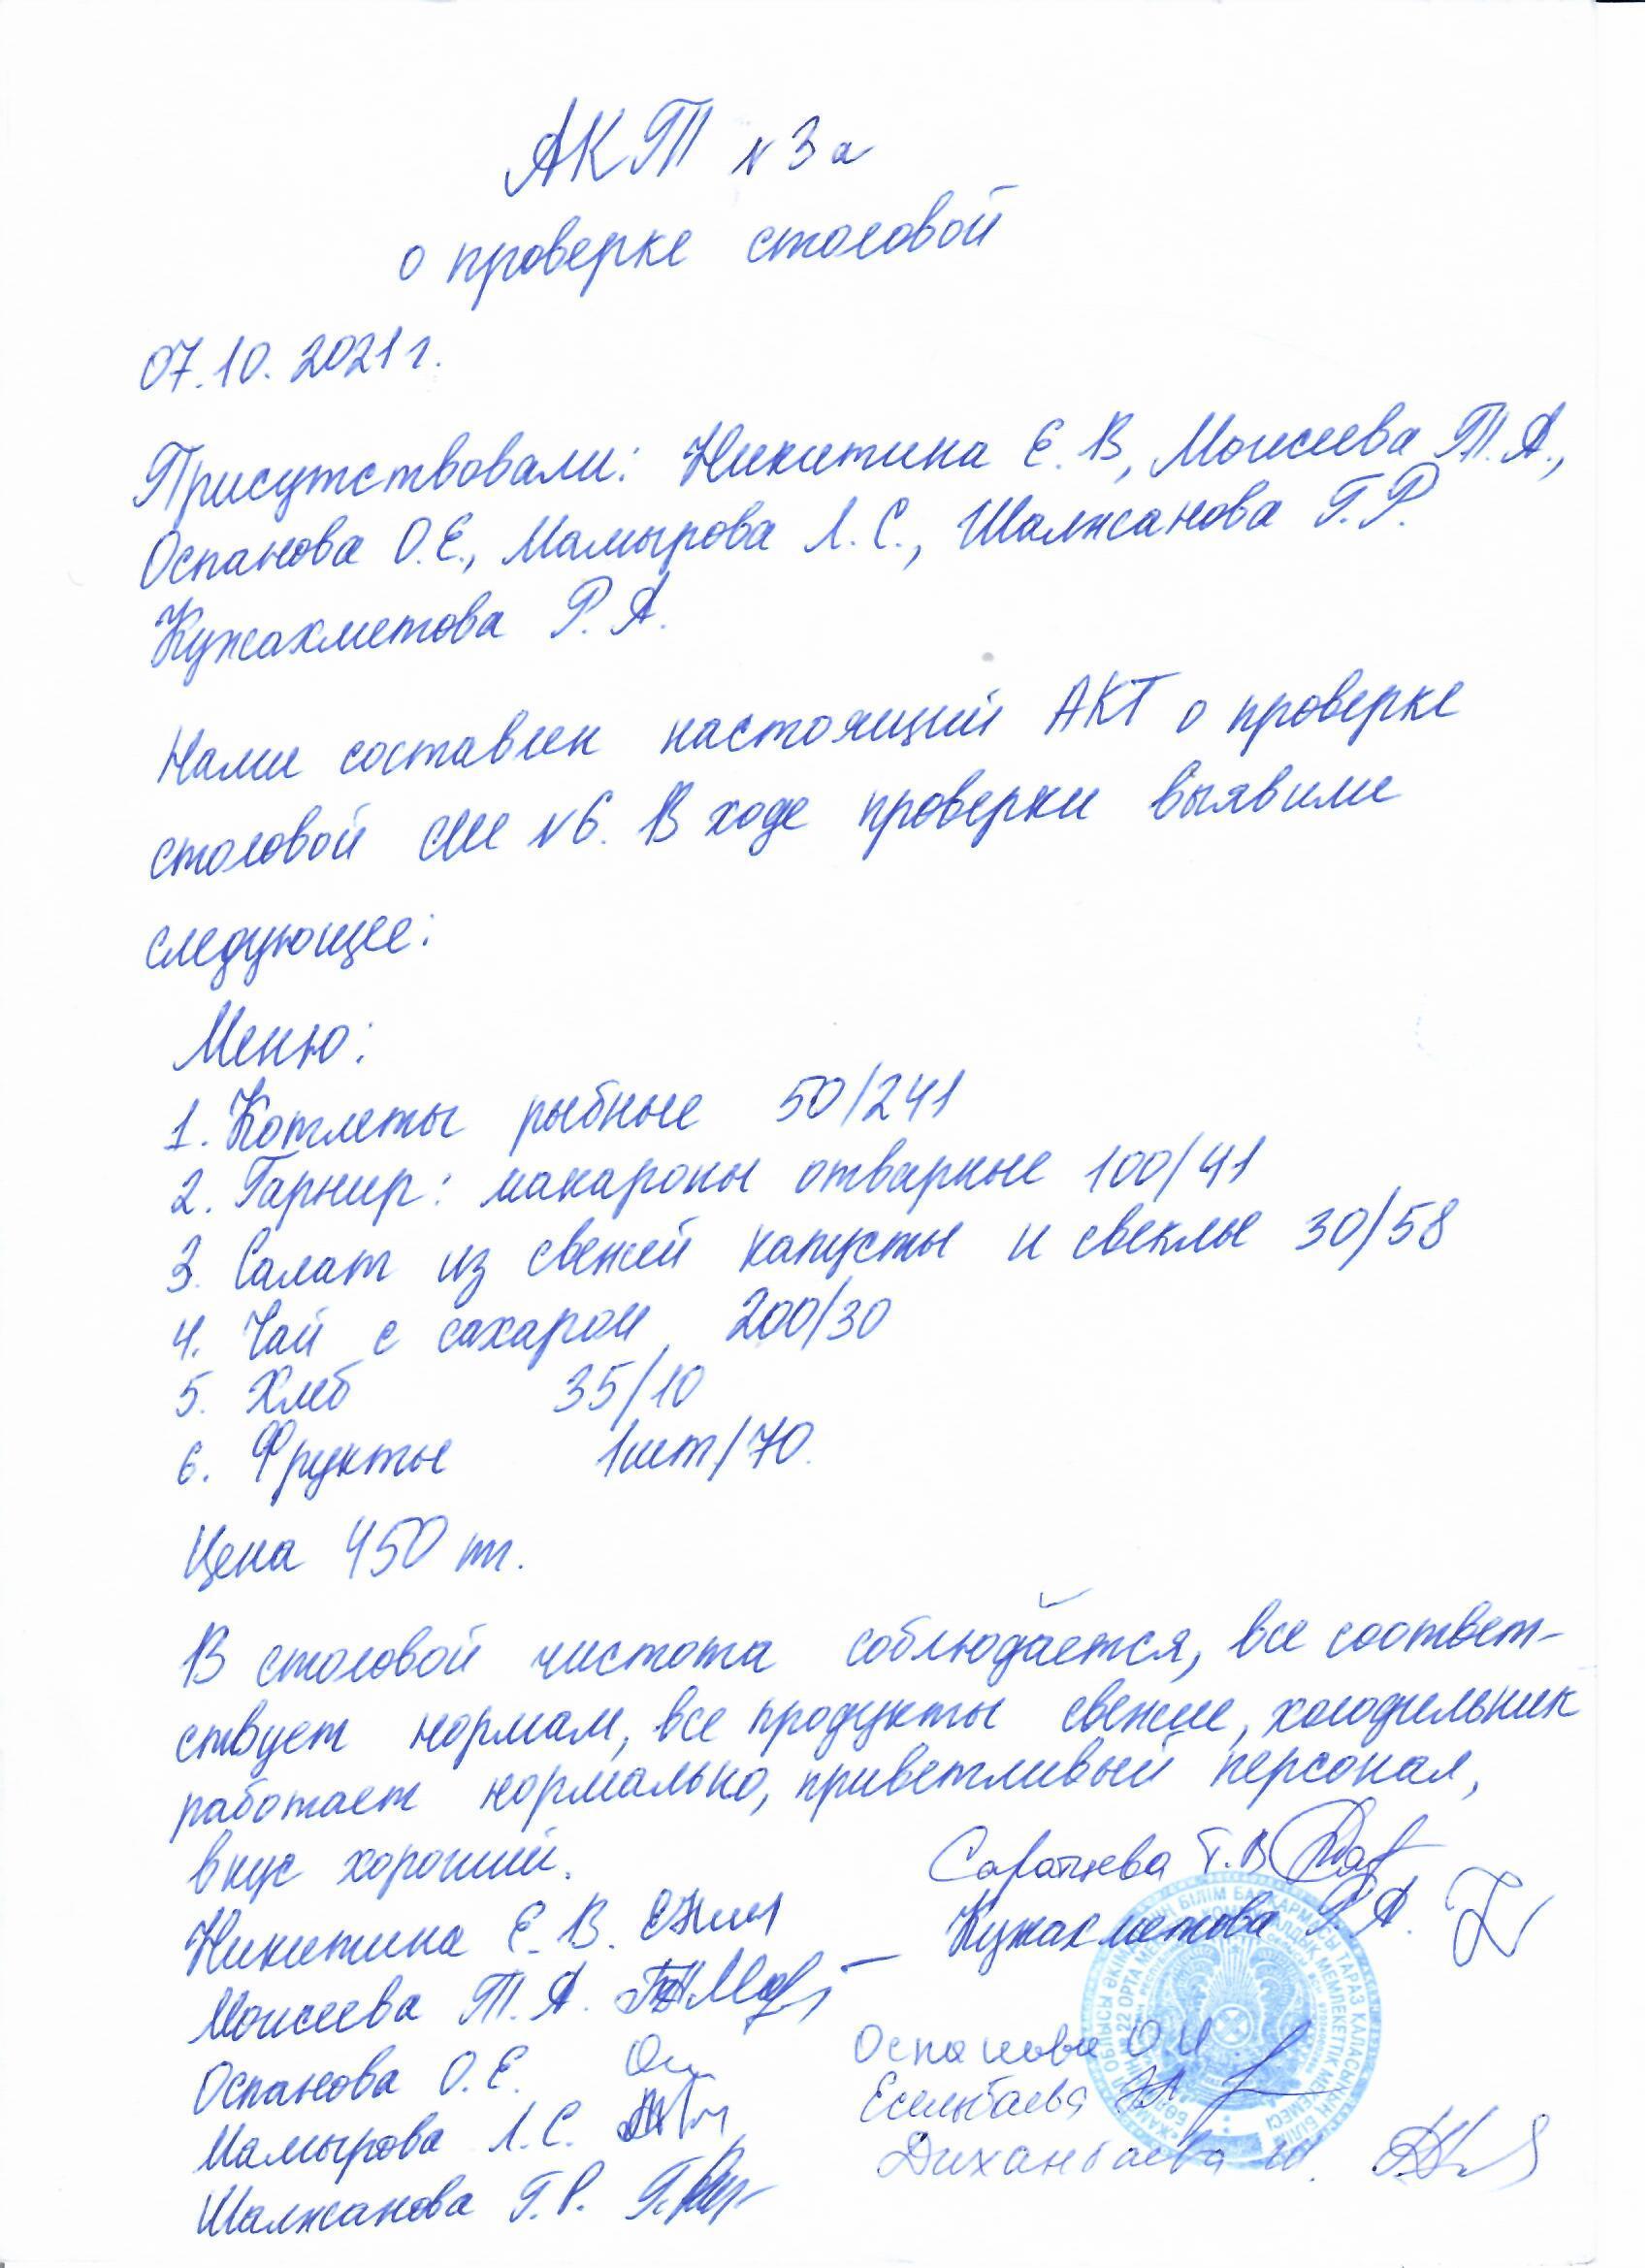 АКТ №3а
о проверке столовой
07.10.2021г.
Присутствовали: Никитина Е.В, Моисеева Т.А.,
Оспанова О.Е., Мамырова Л.С., Шалжанова Г.Р.
Кужахметова Р.А.
Нами составлен настоящий АКТ о проверке
столовой СШ №6. В ходе проверки выявили
следующее:
Меню:
1. Котлеты рыбные 50/241
2. Гарнир: макароны отварные 100/41
3. Салат из свежей капусты и свеклы 30/58
4. Чай с сахаром 200/30
5. Хлеб 35/10
6. Фрукты 1шт/70.
Цена 450 тг.
В столовой чистота соблюдается, все соответ-
ствует нормам, все продукты свежие, холодильник
работает нормально, приветливый персонал,
вкус хороший.
Никитина Е.В.
Моисеева Т.А.
Оспанова О.Е.
Мамырова Л.С.
Шалжанова Г.Р.
Кужахметова Р.А.
Оспанова